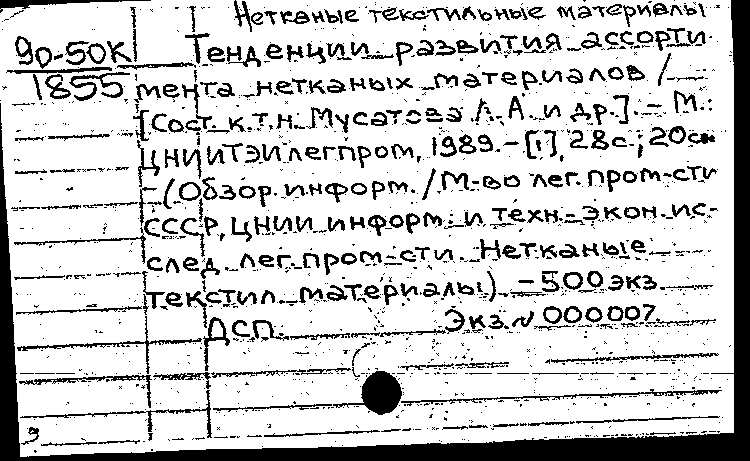 Нетканые текстильные материалы
90-50К Тенденции развития ассорти-
1855 мента нетканых материалов /
[Сост. к.т.н. Мусатова Л.А. и др.]. – М.:
ЦНИИТЭИлегпром, 1989. – [1], 28с.; 20см
– (Обзор. информ. / М-во лег. пром-сти
СССР, ЦНИИ информ. и техн.-экон. ис-
след. лег. пром-сти. Нетканые
текстил. материалы). – 500 экз.
ДСП. Экз. № 000007.
9